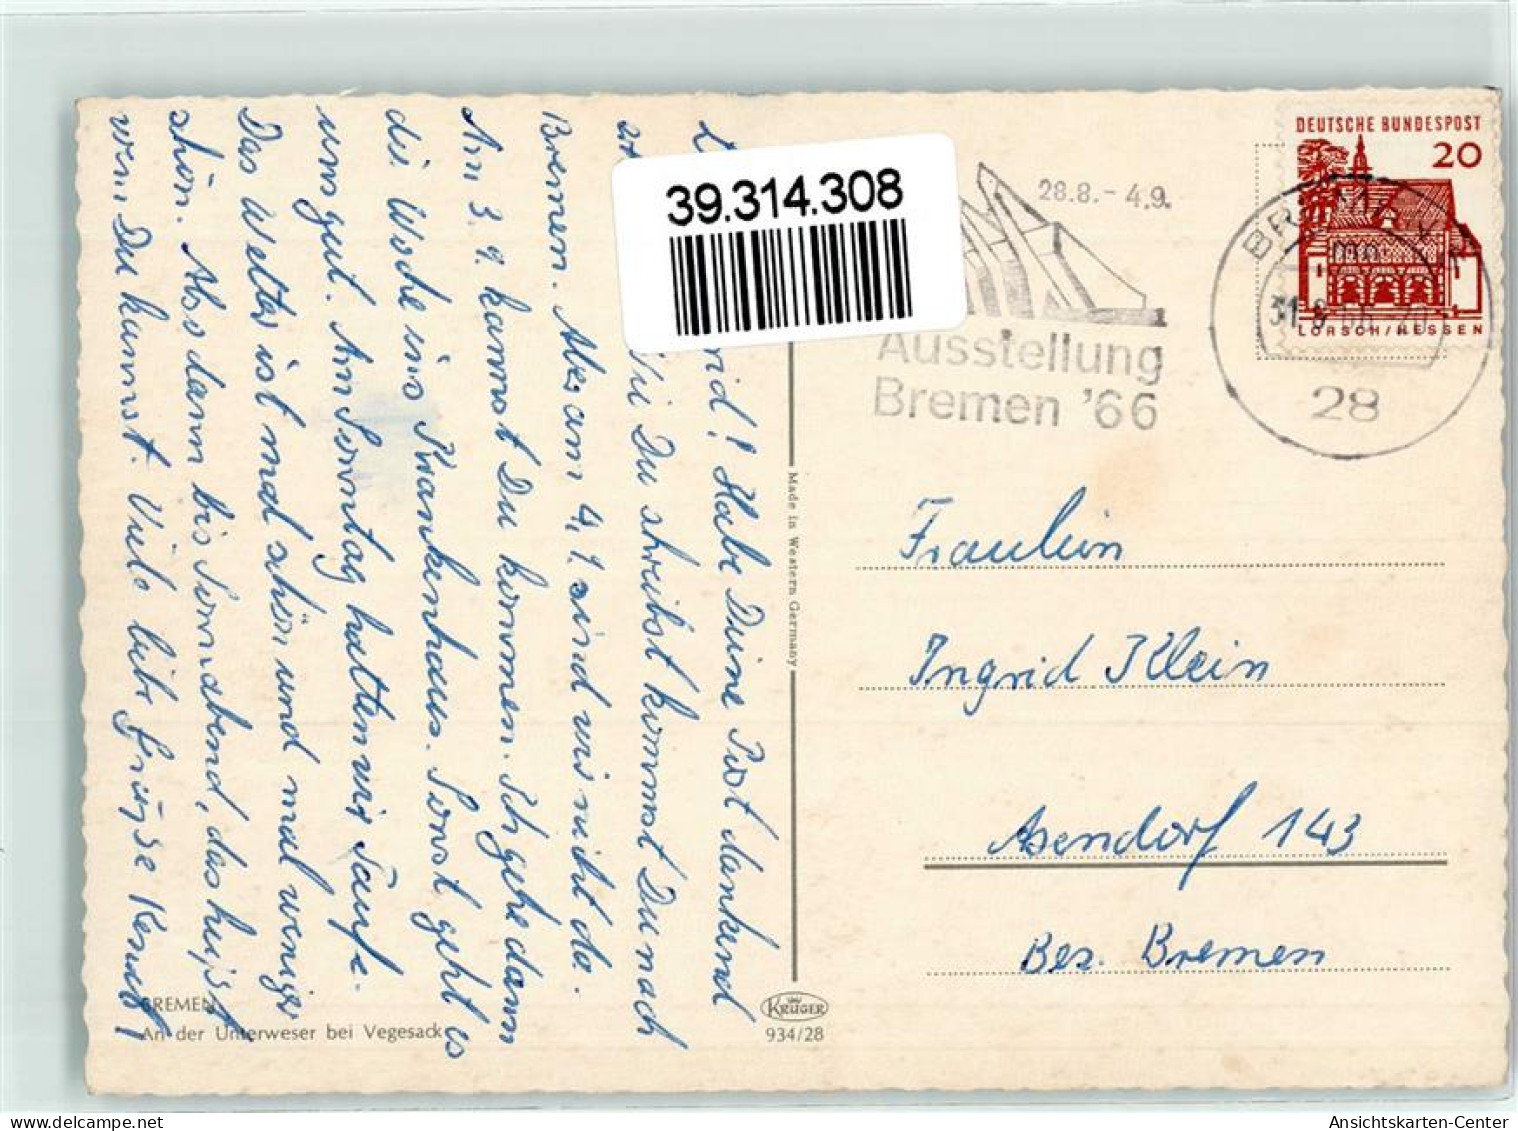 39.314.308
28.8. - 4.9.
Ausstellung
Bremen '66
DEUTSCHE BUNDESPOST
20
LORSCH/HESSEN
28
rid! Habe Deine Post dankend
Wie Du schreibst kommst Du nach
Bremen. Aber am 4.9. sind wir nicht da.
Am 3.9. kannst Du kommen. Ich gehe dann
die Woche ins Krankenhaus. Sonst geht es
uns gut. Am Sonntag hatten wir Taufe.
Das Wetter ist mal schön und mal weniger
schön. Also dann bis Sonnabend, das heißt
wenn Du kannst. Viele liebe Grüsse
Made in Western Germany
Fräulein
Ingrid Klein
Asendorf 143
Bez. Bremen
BREMEN
An der Unterweser bei Vegesack
KRÜGER
934/28
www.delcampe.net
Ansichtskarten-Center